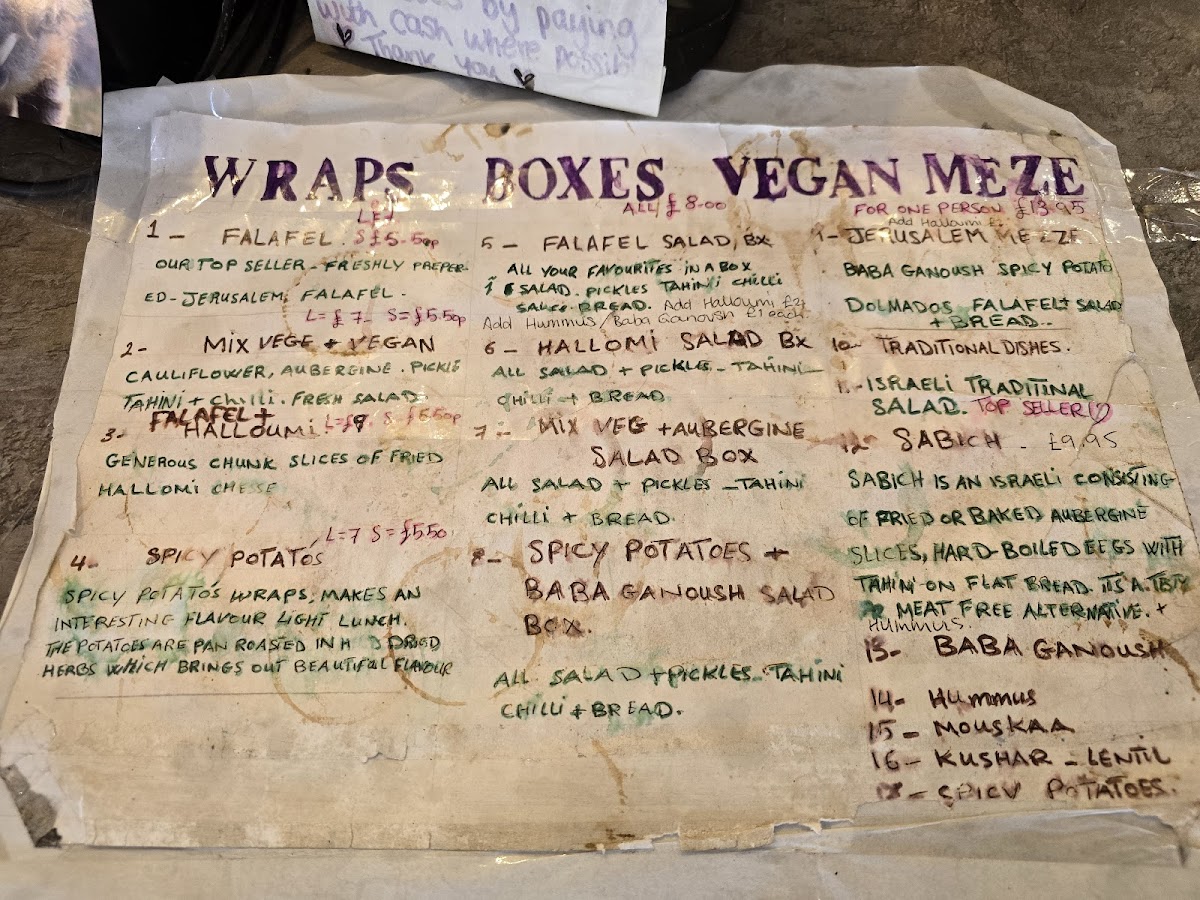 with cash where possible
Thank you
WRAPS BOXES VEGAN MEZE
1 - FALAFEL. S £5.50p
OUR TOP SELLER - FRESHLY PREPER-
ED - JERUSALEM FALAFEL.
L= £7- S= £5.50p
2- MIX VEGE + VEGAN
CAULIFLOWER, AUBERGINE. PICKLE
TAHINI + Chilli. FRESH SALAD
FALAFEL +
3- HALLOUMI. S £5.50p
GENEROUS CHUNK SLICES OF FRIED
HALLOMI CHESSE
L=7 S= £5.50
4- SPICY POTATOS
SPICY POTATO'S WRAPS, MAKES AN
INTERESTING FLAVOUR LIGHT LUNCH.
THE POTATOES ARE PAN ROASTED IN DRIED
HERBS WHICH BRINGS OUT BEAUTIFUL FLAVOUR
ALL £8.00
5 - FALAFEL SALAD, BX
ALL YOUR FAVOURITES IN A BOX
SALAD. PICKLES TAHINI CHILLI
SAUCE. BREAD. Add Halloumi £2
Add Hummus/Baba Ganoush £1 each
6 - HALLOMI SALAD BX
ALL SALAD + PICKLES - TAHINI
CHILLI + BREAD
7 - MIX VEG + AUBERGINE
SALAD BOX
ALL SALAD + PICKLES - TAHINI
CHILLI + BREAD.
8 - SPICY POTATOES +
BABA GANOUSH SALAD
BOX.
ALL SALAD + PICKLES - TAHINI
CHILLI + BREAD.
FOR ONE PERSON £13.95
Add Halloumi
9- JERUSALEM MEZZE
BABA GANOUSH SPICY POTATO
DOLMADOS FALAFEL + SALAD
+ BREAD.
10- TRADITIONAL DISHES.
11- ISRAELI TRADITINAL
SALAD. TOP SELLER
12- SABICH - £9.95
SABICH IS AN ISRAELI CONSISTING
OF FRIED OR BAKED AUBERGINE
SLICES, HARD-BOILED EEGS WITH
TAHINI ON FLAT BREAD. ITS A
MEAT FREE ALTERNATIVE. +
HUMMUS.
13- BABA GANOUSH
14- HUMMUS
15- MOUSKAA
16- KUSHAR - LENTIL
SPICY POTATOES.